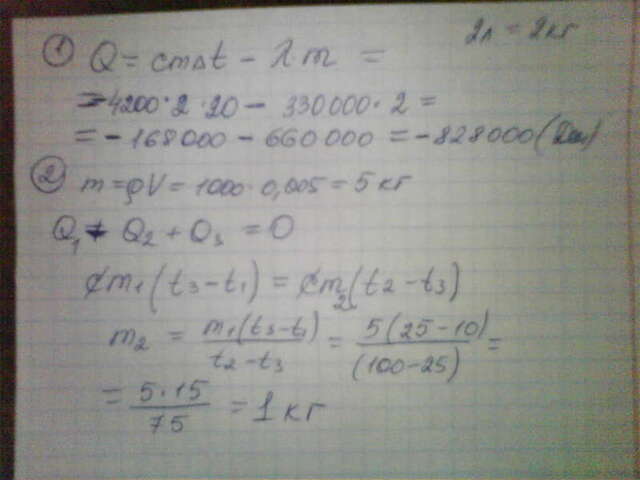 2л = 2кг
① Q = cmΔt - λ·m =
= -4200·2·20 - 330000·2 =
= - 168000 - 660000 = -828000 (Дж)
② m = ρV = 1000·0,005 = 5 кг
Q₁ + Q₂ + Q₃ = 0
cm₁(t₃-t₁) = cm₂(t₂-t₃)
m₂ = m₁(t₃-t₁) / t₂-t₃ = 5(25-10) / (100-25) =
= 5·15 / 75 = 1 кг